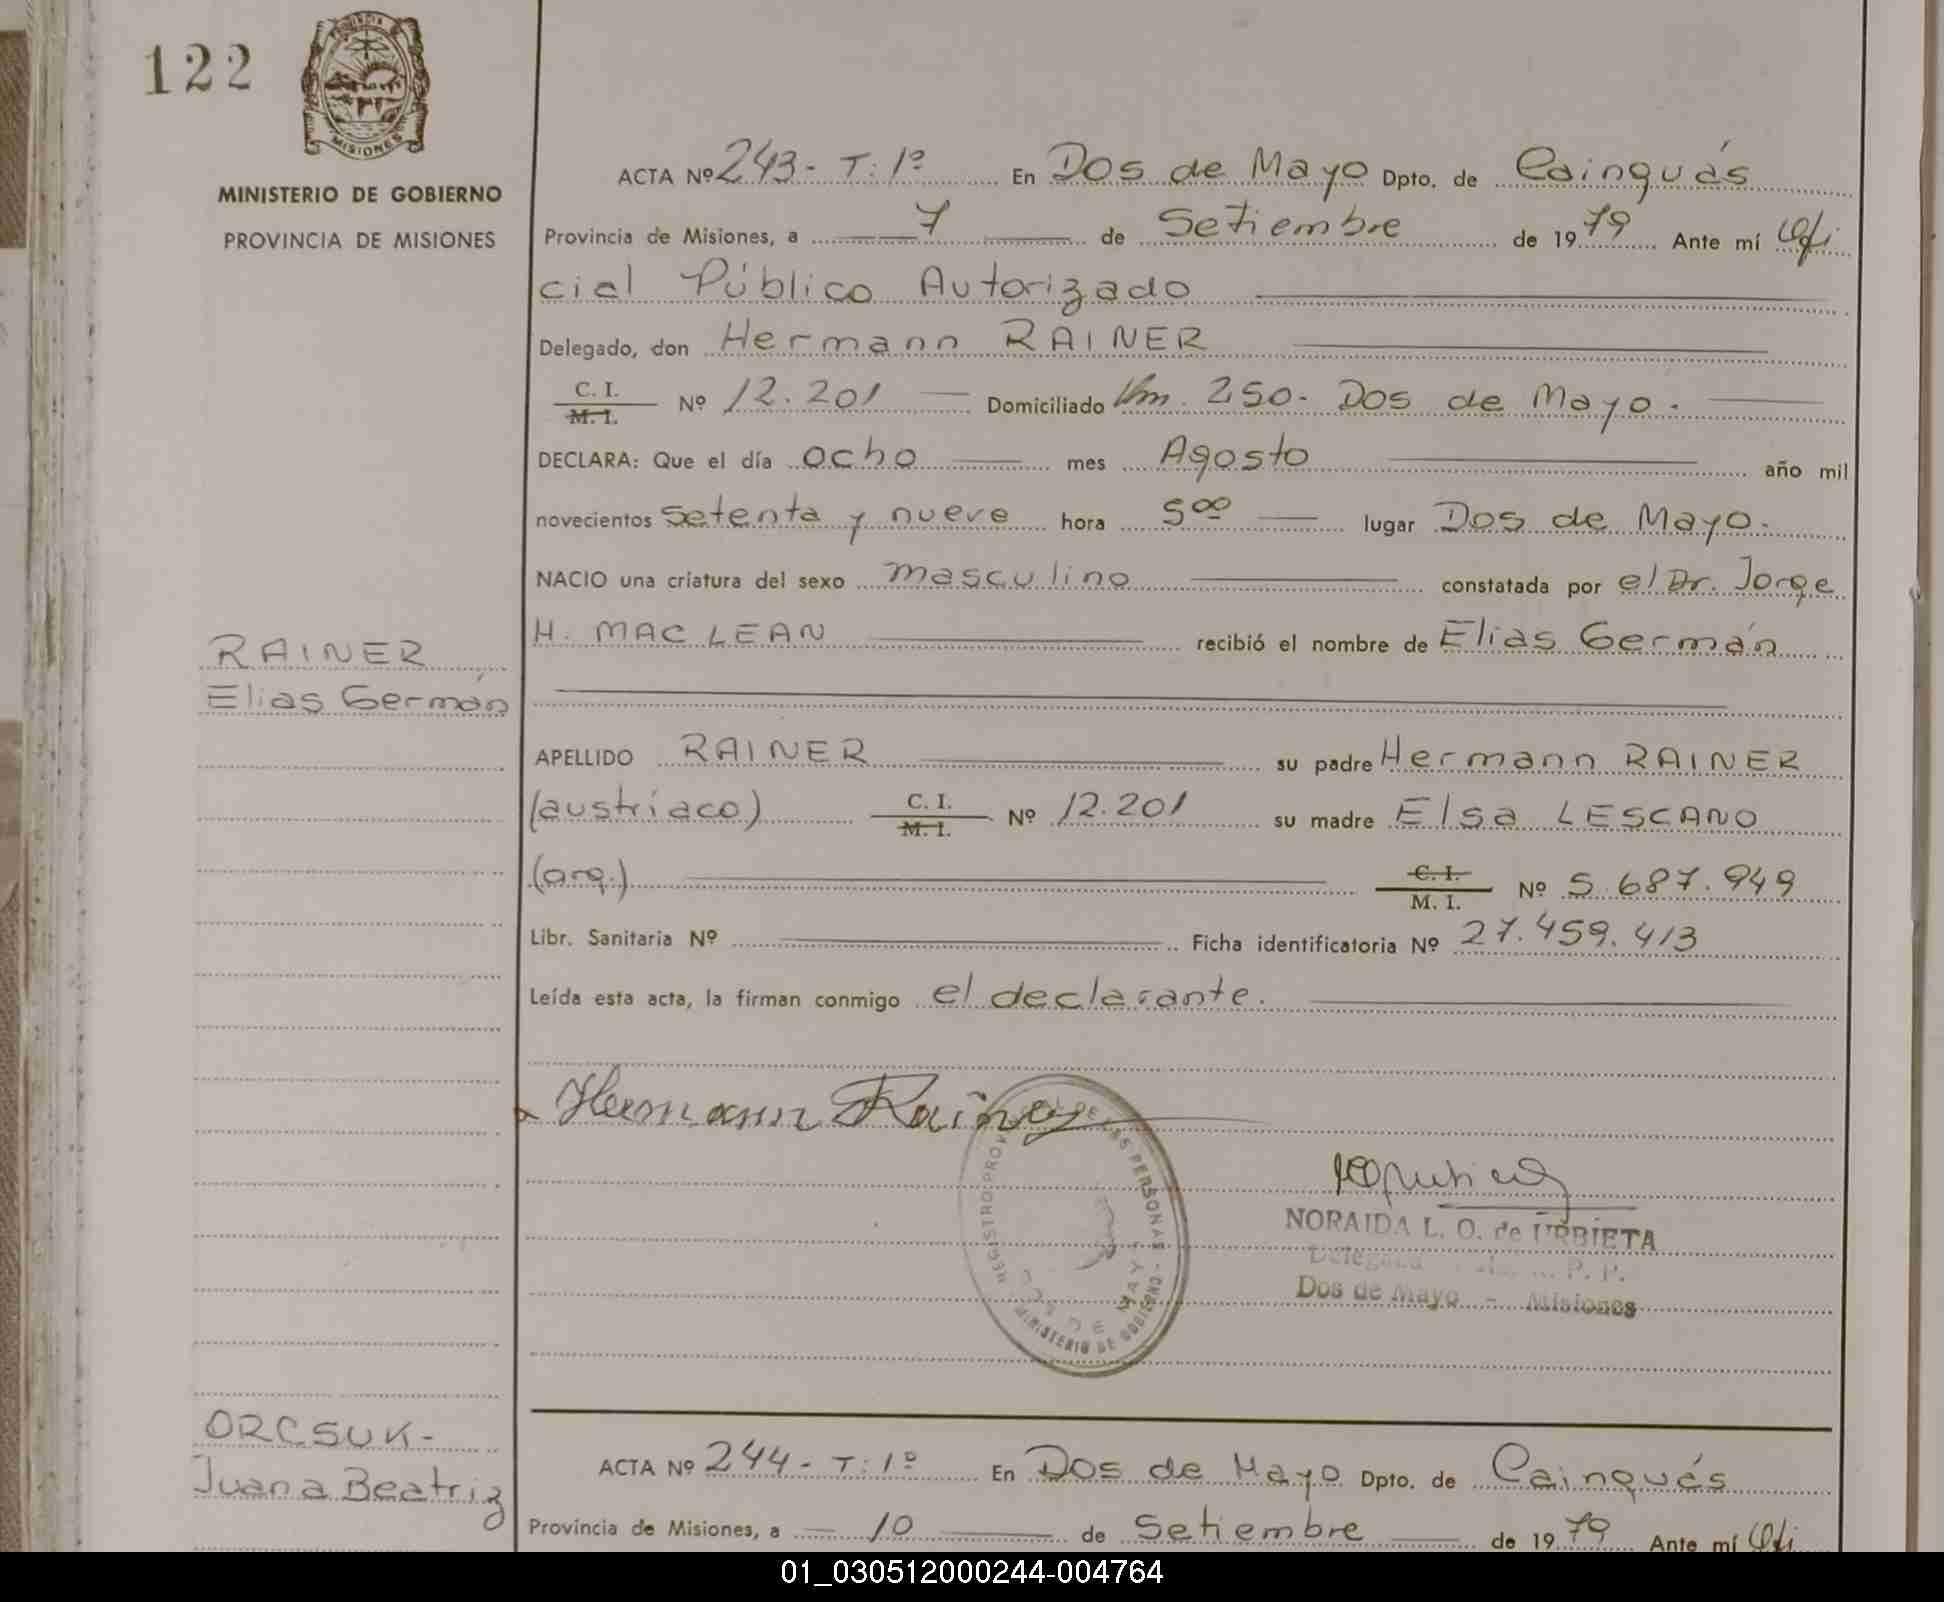 122
MISIONES
MINISTERIO DE GOBIERNO
PROVINCIA DE MISIONES
ACTA Nº 243 - T: 1º En Dos de Mayo Dpto. de Cainguás
Provincia de Misiones, a 7 de Setiembre de 1979 Ante mí Ofi
cial Público Autorizado
Delegado, don Hermann RAINER
C. I. / M. I. Nº 12.201 Domiciliado Km. 250. Dos de Mayo.
DECLARA: Que el día ocho mes Agosto año mil
novecientos setenta y nueve hora 5 00 lugar Dos de Mayo.
NACIO una criatura del sexo masculino constatada por el Dr. Jorge
H. MAC LEAN recibió el nombre de Elias Germán
RAINER
Elias Germán
APELLIDO RAINER su padre Hermann RAINER
(austríaco) C. I. / M. I. Nº 12.201 su madre Elsa LESCANO
(arg.) C. I. / M. I. Nº 5.687.949
Libr. Sanitaria Nº Ficha identificatoria Nº 27.459.413
Leída esta acta, la firman conmigo el declarante.
Hermann Rainer
REGISTRO DE LAS PERSONAS - MINISTERIO DE GOBIERNO
DOS DE MAYO
NORAIDA L. O. de URBIETA
Dos de Mayo - Misiones
ORCSUK -
Juana Beatriz
ACTA Nº 244 - T: 1º En Dos de Mayo Dpto. de Cainguás
Provincia de Misiones, a 10 de Setiembre de 1979 Ante mí Ofi
01_030512000244-004764